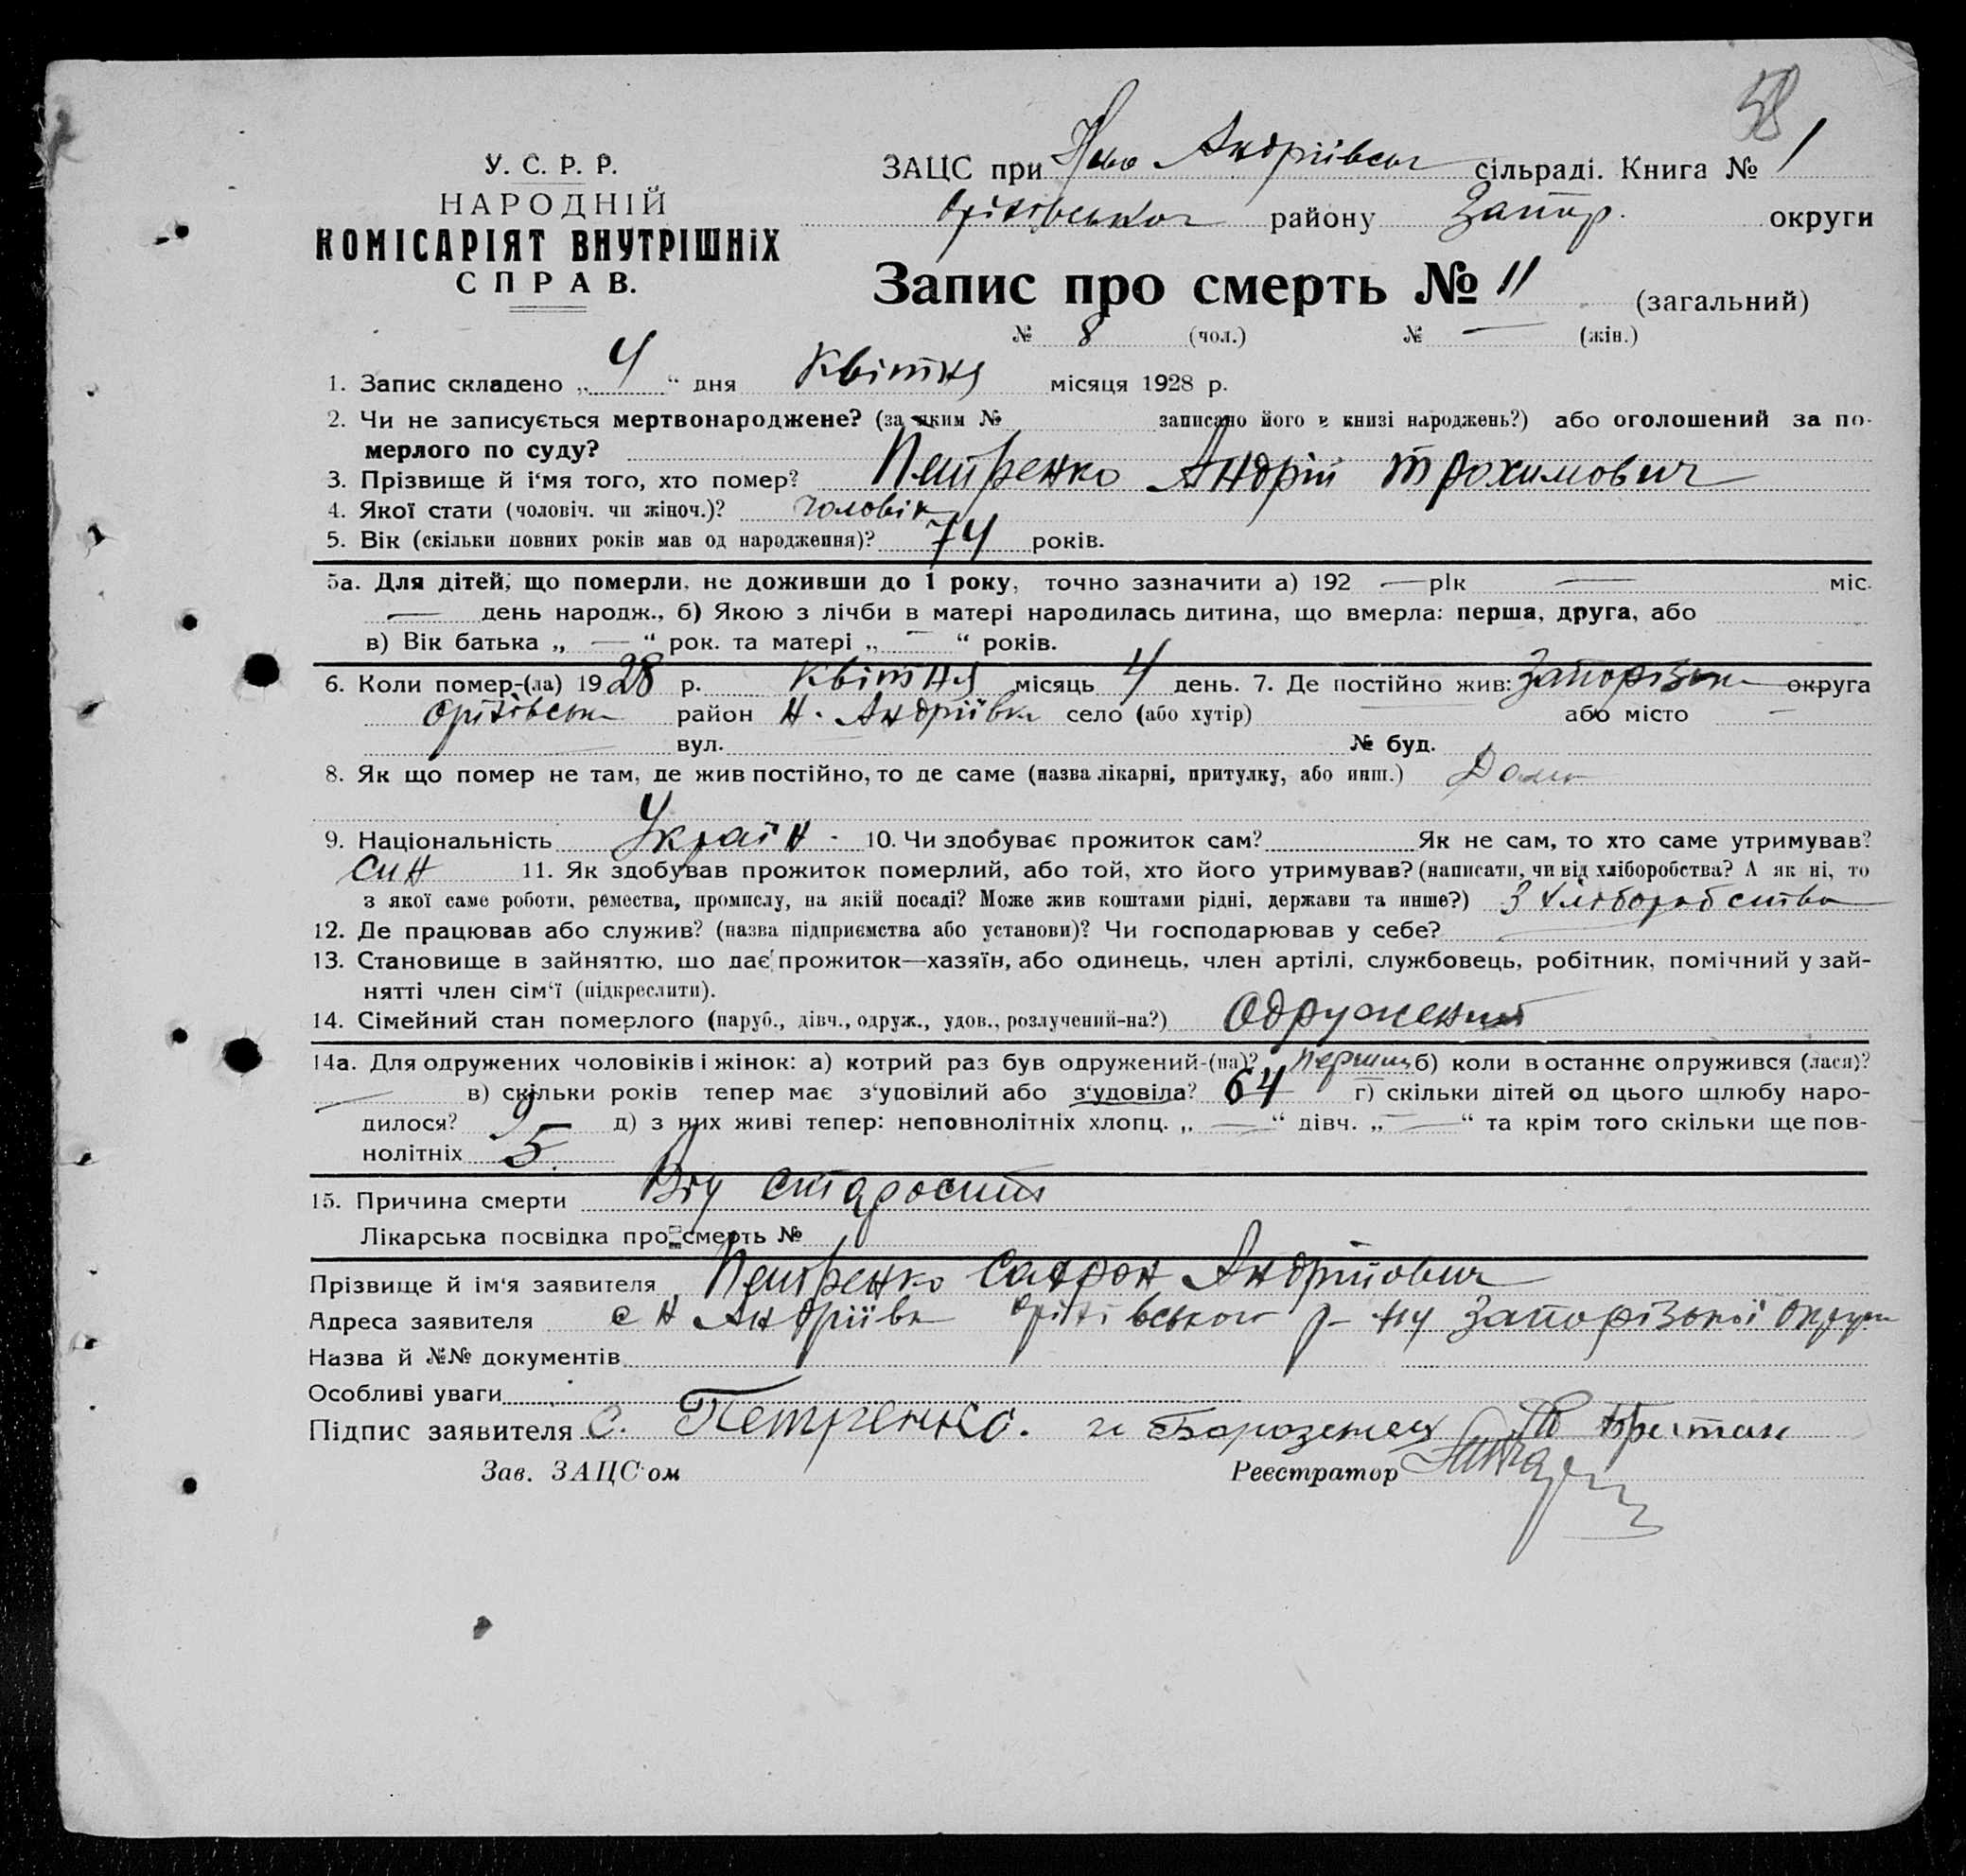 58
У. С. Р. Р.
НАРОДНІЙ
КОМІСАРІЯТ ВНУТРІШНІХ
СПРАВ.
ЗАЦС при Ново Андріївськ сільраді. Книга № 1
Оріхівської району Запор. округи
Запис про смерть № 11 (загальний)
№ 8 (чол.) № — (жін.)
1. Запис складено „ 4 “ дня Квітня місяця 1928 р.
2. Чи не записується мертвонароджене? (за яким № записано його в книзі народжень?) або оголошений за по-
мерлого по суду?
3. Прізвище й і'мя того, хто помер? Петренко Андрій Трохимович
4. Якої стати (чоловіч. чи жіноч.)? чоловік
5. Вік (скільки повних років мав од народження)? 74 років.
5а. Для дітей, що померли, не доживши до 1 року, точно зазначити а) 192 — рік — міс.
— день народж., б) Якою з лічби в матері народилась дитина, що вмерла: перша, друга, або
в) Вік батька „ — “ рок. та матері „ — “ років.
6. Коли помер-(ла) 1928 р. Квітня місяць 4 день. 7. Де постійно жив: Запорізька округа
Оріхівськ район Н. Андріївка село (або хутір) або місто —
вул. № буд.
8. Як що помер не там, де жив постійно, то де саме (назва лікарні, притулку, або инш.) Дома
9. Національність Україн. 10. Чи здобуває прожиток сам? Як не сам, то хто саме утримував?
син 11. Як здобував прожиток померлий, або той, хто його утримував? (написати, чи від хліборобства? А як ні, то
з якої саме роботи, ремества, промислу, на якій посаді? Може жив коштами рідні, держави та инше?) З хліборобства
12. Де працював або служив? (назва підприємства або установи)? Чи господарював у себе?
13. Становище в зайняттю, що дає прожиток—хазяїн, або одинець, член артілі, службовець, робітник, помічний у зай-
нятті член сім'ї (підкреслити).
14. Сімейний стан померлого (паруб., дівч., одруж., удов., розлучений-на?) Одружений
14а. Для одружених чоловіків і жінок: а) котрий раз був одружений-(на)? перший б) коли в останнє одружився (лася)?
— в) скільки років тепер має з'удовілий або з'удовіла? 64 г) скільки дітей од цього шлюбу наро-
дилося? 9 д) з них живі тепер: неповнолітніх хлопц. „ — “ дівч. „ — “ та крім того скільки ще пов-
нолітніх 5.
15. Причина смерти Від старости
Лікарська посвідка про смерть №
Прізвище й ім'я заявителя Петренко Сафрон Андрійович
Адреса заявителя с Н Андріївка Оріхівського р-ну Запорізької округи
Назва й №№ документів
Особливі уваги
Підпис заявителя С. Петренко.
Зав. ЗАЦС'ом Реєстратор